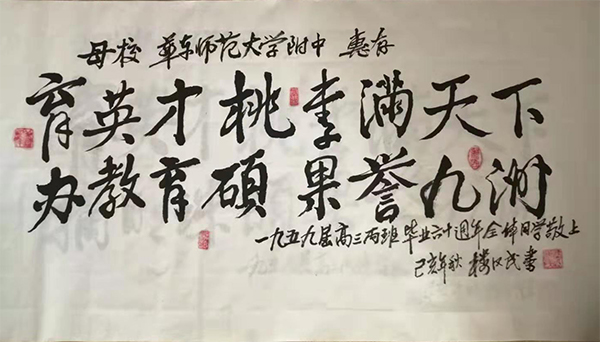 母校 華东师范大学附中 惠存
育英才桃李满天下
办教育碩果誉九洲
一九五九届高三丙班毕业六十週年全体同学敬上
己亥年秋 楼汉民書